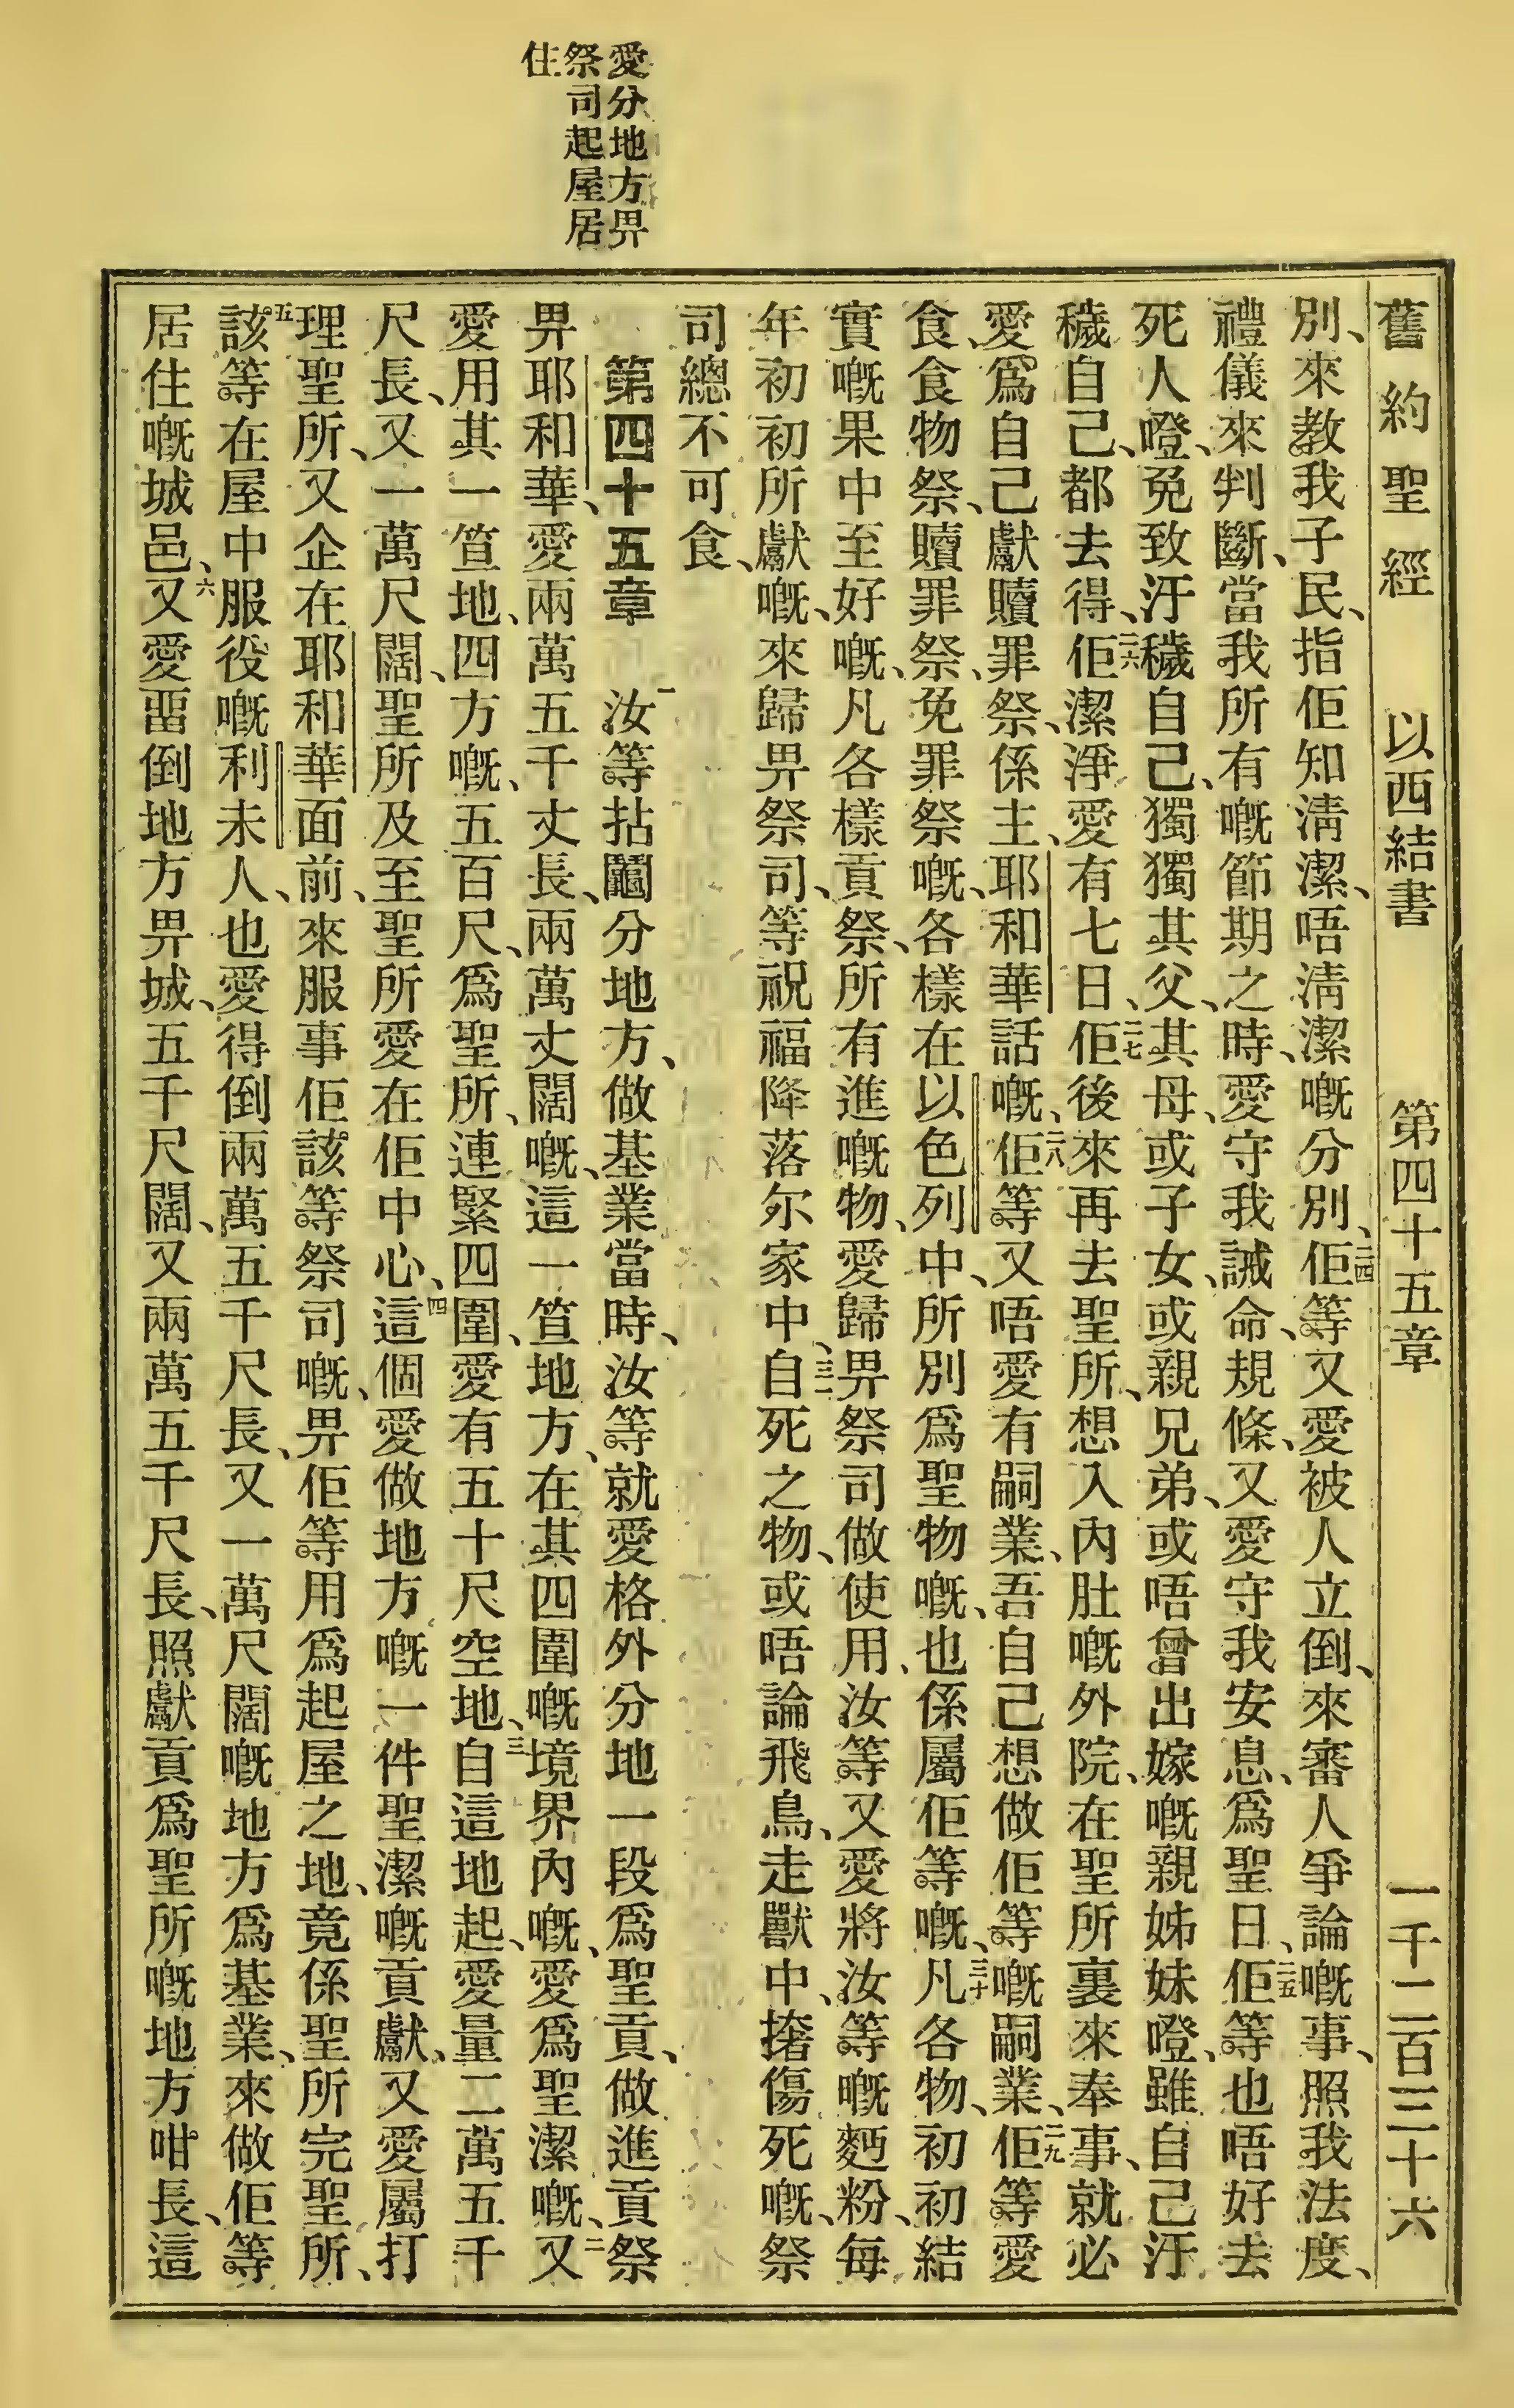 愛分地方畀
祭司起屋居
住
舊約聖經 以西結書 第四十五章 一千二百三十六
別、來教我子民、指佢知淸潔、唔淸潔嘅分別、二四佢等又愛被人立倒、來審人爭論嘅事、照我法度、
禮儀來判斷、當我所有嘅節期之時、愛守我誡命、規條、又愛守我安息、爲聖日、二五佢等也唔好去
死人嶝、免致汙穢自己、獨獨其父、其母、或子女、或親兄弟、或唔曾出嫁嘅親姊妹嶝、雖自己汙
穢自己、都去得、二六佢潔淨、愛有七日、二七佢後來再去聖所、想入內肚嘅外院、在聖所裏來奉事、就必
愛爲自己獻贖罪祭、係主、耶和華話嘅、二八佢等又唔愛有嗣業、吾自己想做佢等嘅嗣業、二九佢等愛
食、食物祭、贖罪祭、免罪祭嘅、各樣在以色列中、所別爲聖物嘅、也係屬佢等嘅、三十凡各物、初初結
實嘅果中至好嘅、凡各樣貢祭、所有進嘅物、愛歸畀祭司做使用、汝等又愛將汝等嘅麪粉、每
年初初所獻嘅、來歸畀祭司、等祝福降落尔家中、三一自死之物、或唔論飛鳥、走獸中、撦傷死嘅、祭
司總不可食、
第四十五章 一汝等拈鬮分地方、做基業當時、汝等就愛格外分地一段爲聖貢、做進貢祭
畀耶和華、愛兩萬五千丈長、兩萬丈闊嘅、這一笪地方、在其四圍嘅境界內嘅、愛爲聖潔嘅、二又
愛用其一笪地、四方嘅、五百尺、爲聖所、連緊四圍、愛有五十尺空地、三自這地起、愛量二萬五千
尺長、又一萬尺闊、聖所及至聖所、愛在佢中心、四這個愛做地方嘅一件聖潔嘅貢獻、又愛屬打
理聖所、又企在耶和華面前、來服事佢該等祭司嘅、畀佢等用爲起屋之地、竟係聖所完聖所、
五該等在屋中服役嘅利未人、也愛得倒兩萬五千尺長、又一萬尺闊嘅地方爲基業、來做佢等
居住嘅城邑、六又愛畱倒地方畀城、五千尺闊、又兩萬五千尺長、照獻貢爲聖所嘅地方咁長、這